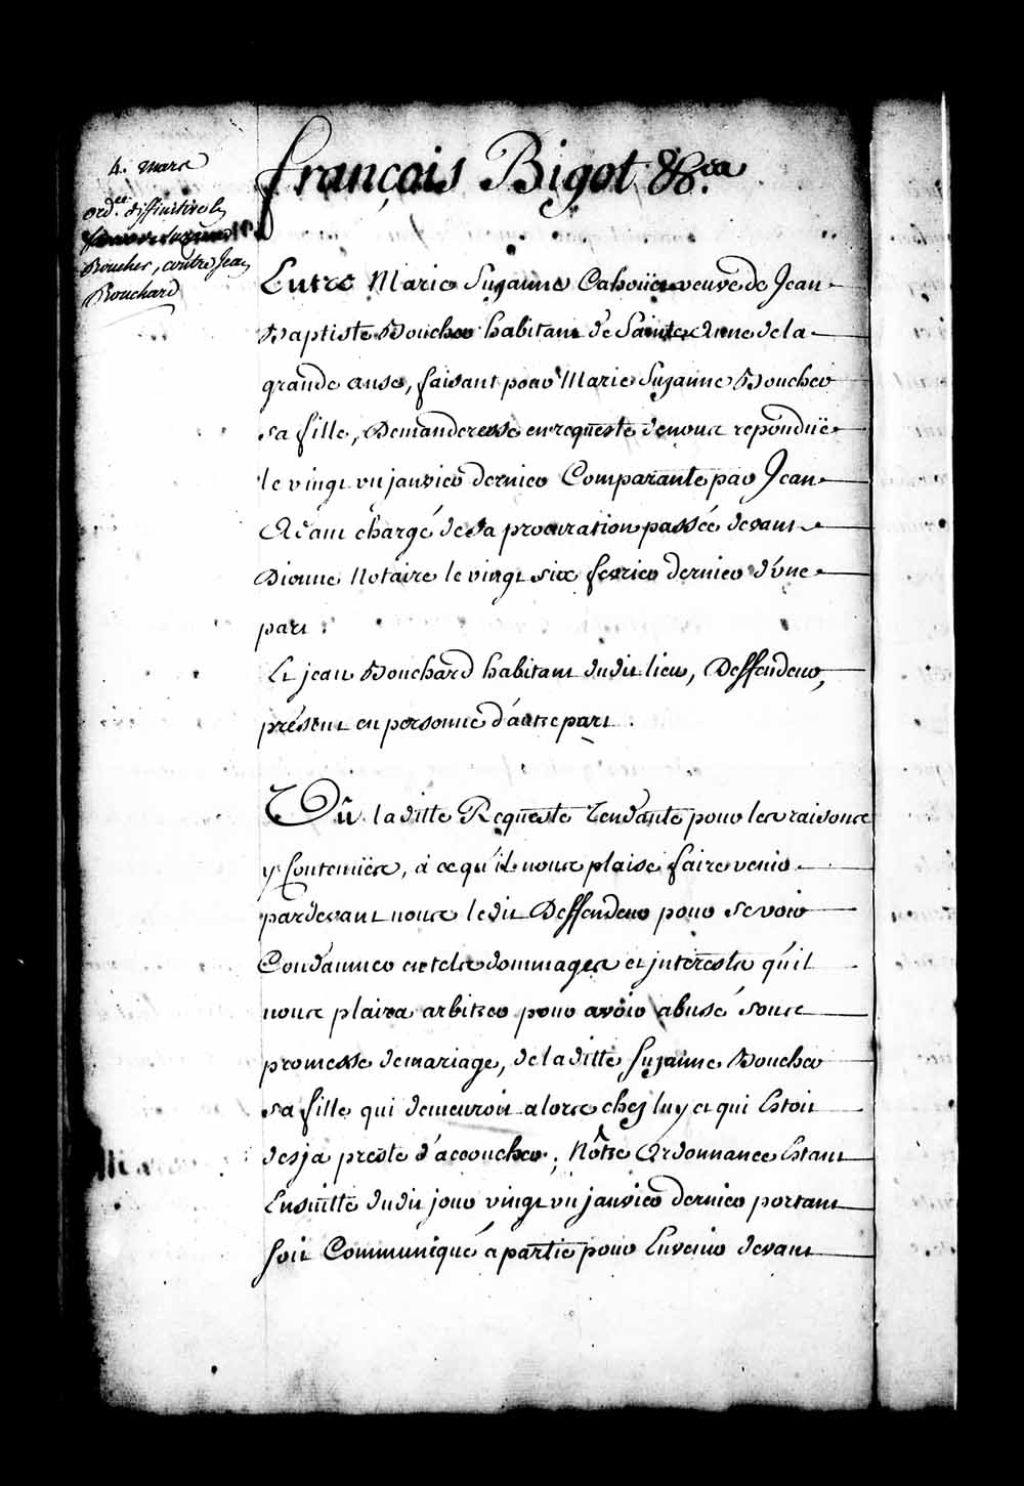 4. mars
ord.ce diffinitive
Boucher, contre Jean
Bouchard
françois Bigot &c.a
Entre Marie Suzanne Cahoüet veuve de Jean
Baptiste Boucher habitant de Sainte Anne de la
grande anse, faisant pour Marie Suzanne Boucher
sa fille, Demanderesse en requeste de nous repondüe
le vingt un janvier dernier Comparante par Jean
Adam chargé de sa procuration passée devant
Dionne Notaire le vingt six fevrier dernier d'úne
part.
Et jean Bouchard habitant dudit lieu, Deffendeur,
présent en personne d'autre part.
Vû la ditte Requeste Tendante pour les raisons
y Contenües, à ce qu'il nous plaise faire venir
pardevant nous ledit Deffendeur pour se voir
Condamner en tels dommages et jnterests qu'il
nous plaira arbitrer pour avoir abusé sous
promesse de mariage, de la ditte Suzanne Boucher
sa fille qui demeuroit alors chez luy et qui Estoit
desja preste d'accoucher; Nôtre Ordonnance Etant
Ensuitte dudit jour vingt un janvier dernier portant
soit Communiqué a partie pour Envenir devant